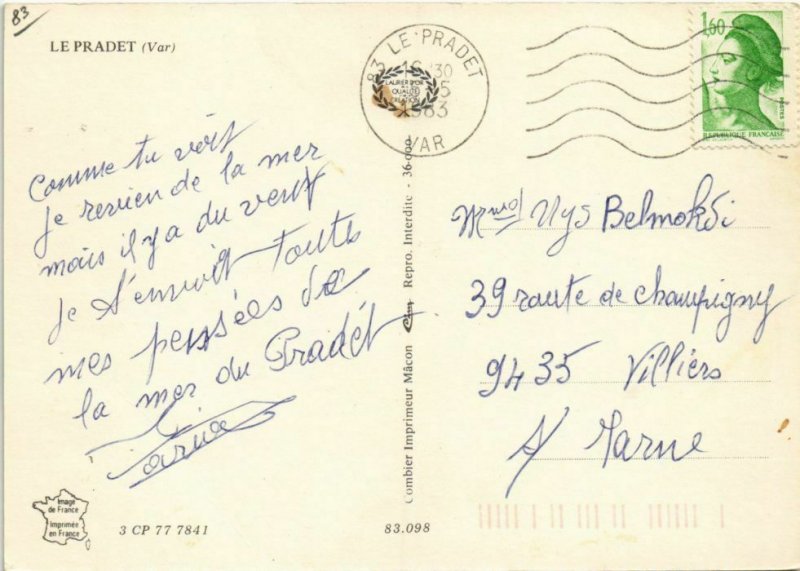 83
LE PRADET (Var)
83 LE PRADET
16 30
5
1983
VAR
LAURIER D'OR
DE LA
QUALITÉ
CRÉATION
1,60
POSTES
REPUBLIQUE FRANÇAISE
Comme tu voit
je revien de la mer
mais il y a du vent
je t'envoit toutes
mes pensées de
la mer du Pradét
Combier Imprimeur Mâcon Cim Repro. Interdite - 36-000
Belmokdi
39 route de champigny
9435 Villiers
s/ Marne
Image
de France
Imprimée
en France
3 CP 77 7841
83.098